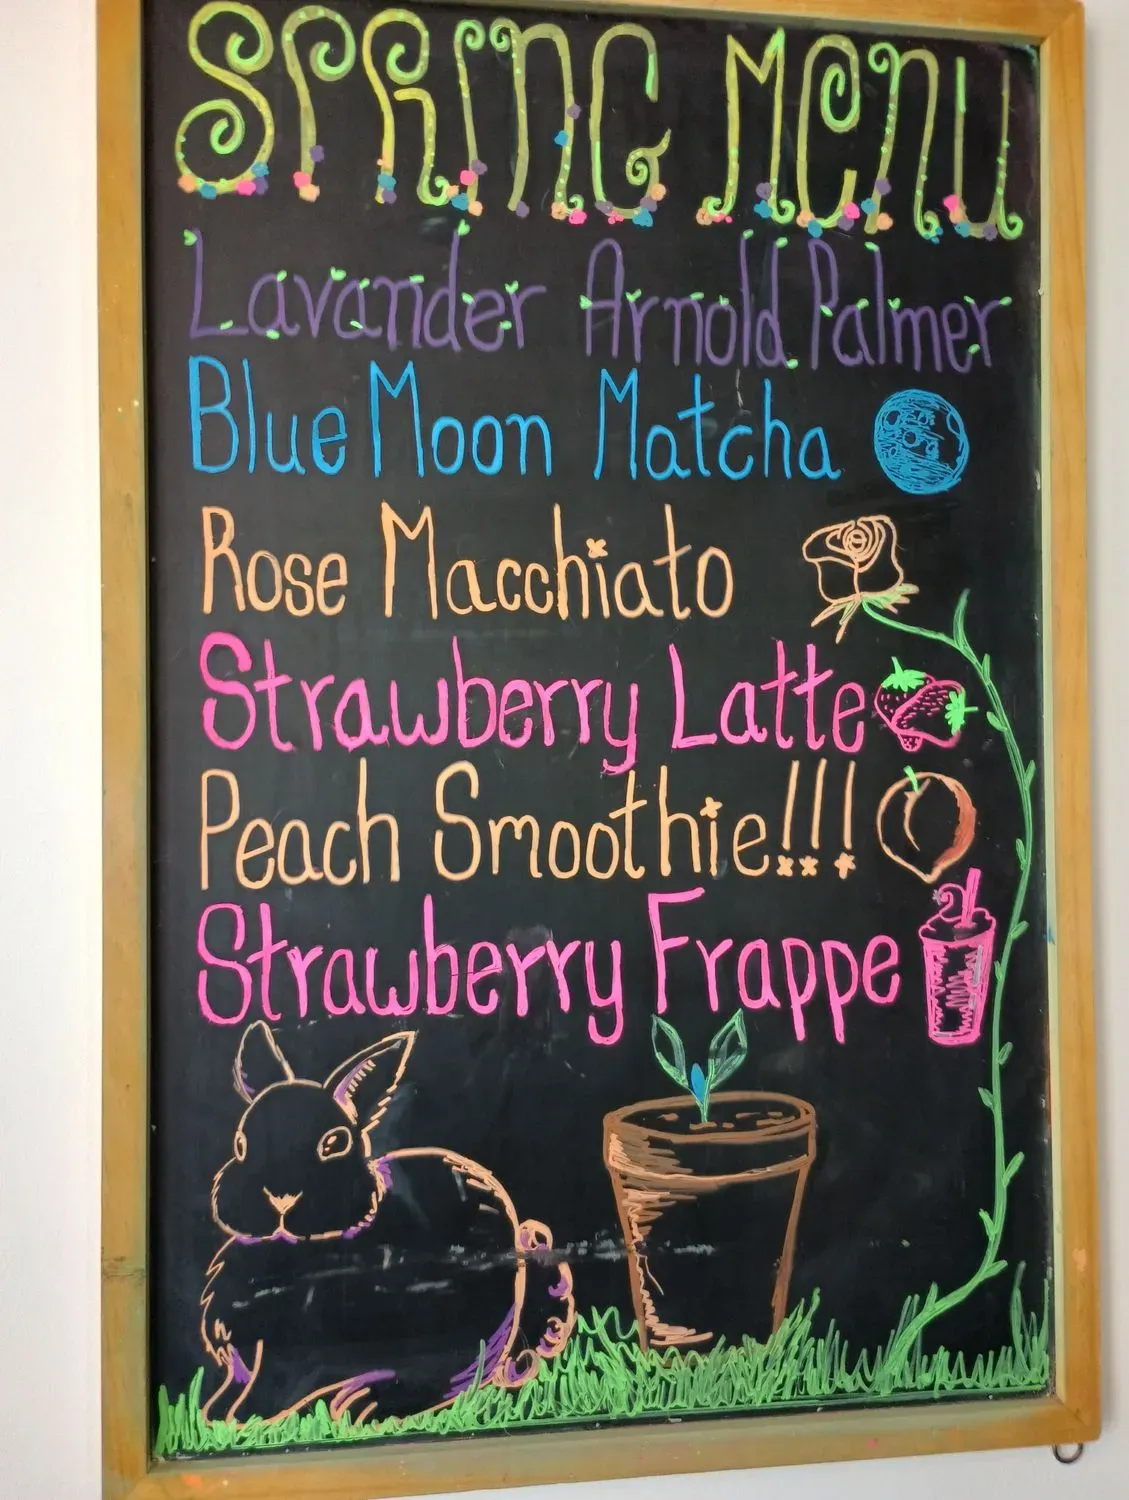 SPRING MENU
Lavander Arnold Palmer
Blue Moon Matcha
Rose Macchiato
Strawberry Latte
Peach Smoothie!!!
Strawberry Frappe